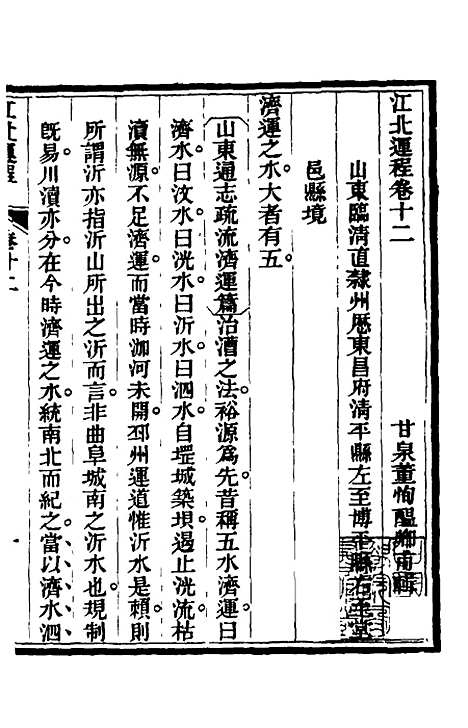 江北運程卷十二
甘泉董恂醞卿甫輯
山東臨清直隸州歷東昌府清平縣左至博平縣右至堂
邑縣境
濟運之水大者有五。
山東通志疏流濟運篇治漕之法。裕源爲先。昔稱五水濟運。曰
濟水。曰汶水。曰洸水。曰沂水。曰泗水。自堽城築壩。遏止洸流。枯
瀆無源。不足濟運。而當時泇河未開。邳州運道。惟沂水是賴。則
所謂沂。亦指沂山所出之沂而言。非曲阜城南之沂水也。規制
旣易。川瀆亦分。在今時濟運之水。統南北而紀之。當以濟水、泗
江北運程
卷十二
一